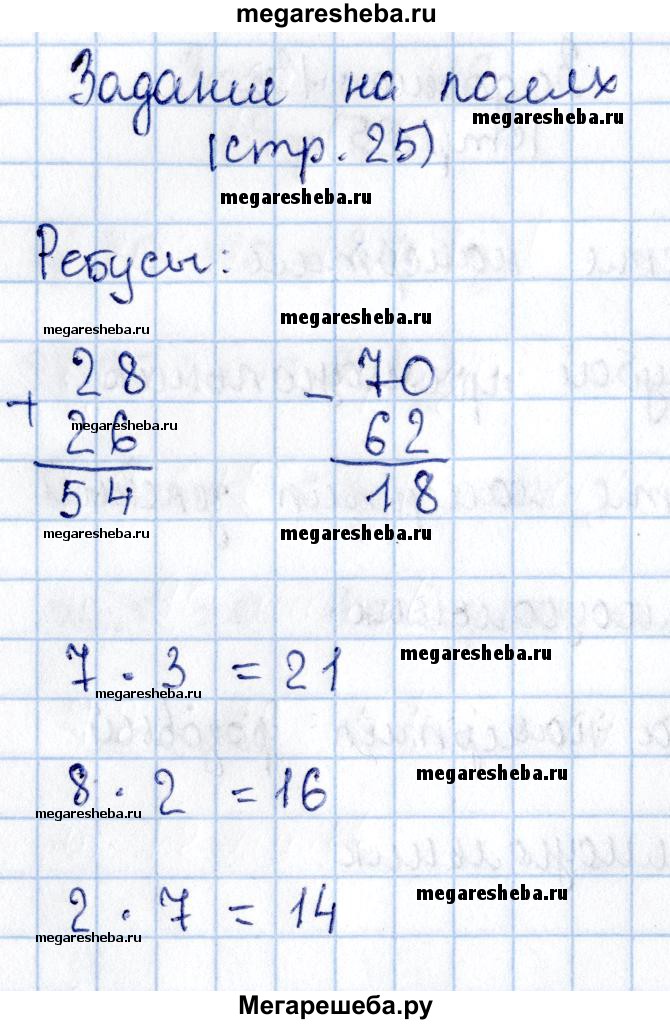 megaresheba.ru
Задание на полях
megaresheba.ru
(стр. 25)
megaresheba.ru
Ребусы:
megaresheba.ru megaresheba.ru
28 - 70
+ 26 62
megaresheba.ru
54 18
megaresheba.ru megaresheba.ru
7 · 3 = 21 megaresheba.ru
megaresheba.ru
8 · 2 = 16 megaresheba.ru
megaresheba.ru
2 · 7 = 14 megaresheba.ru
megaresheba.ru
Мегарешеба.ру